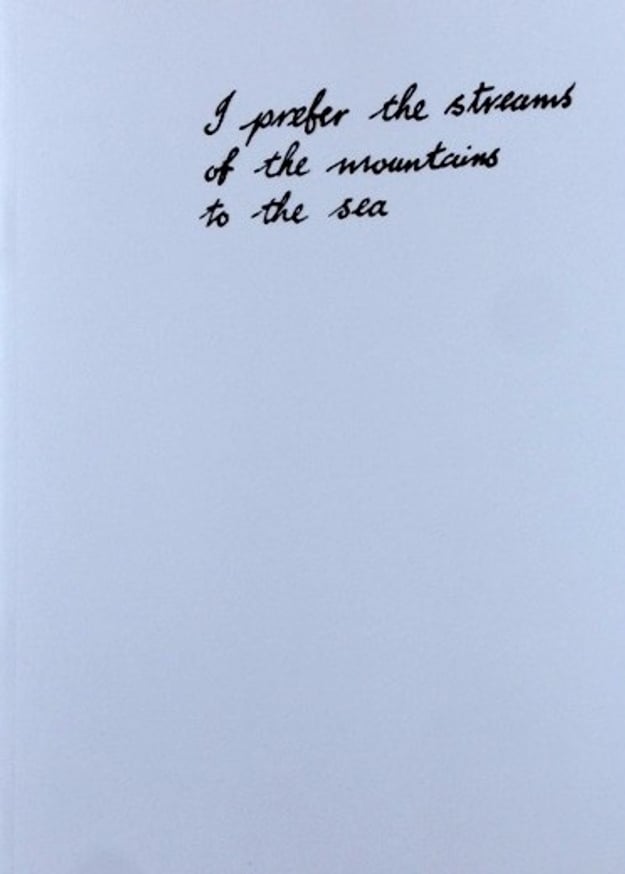 I prefer the streams
of the mountains
to the sea